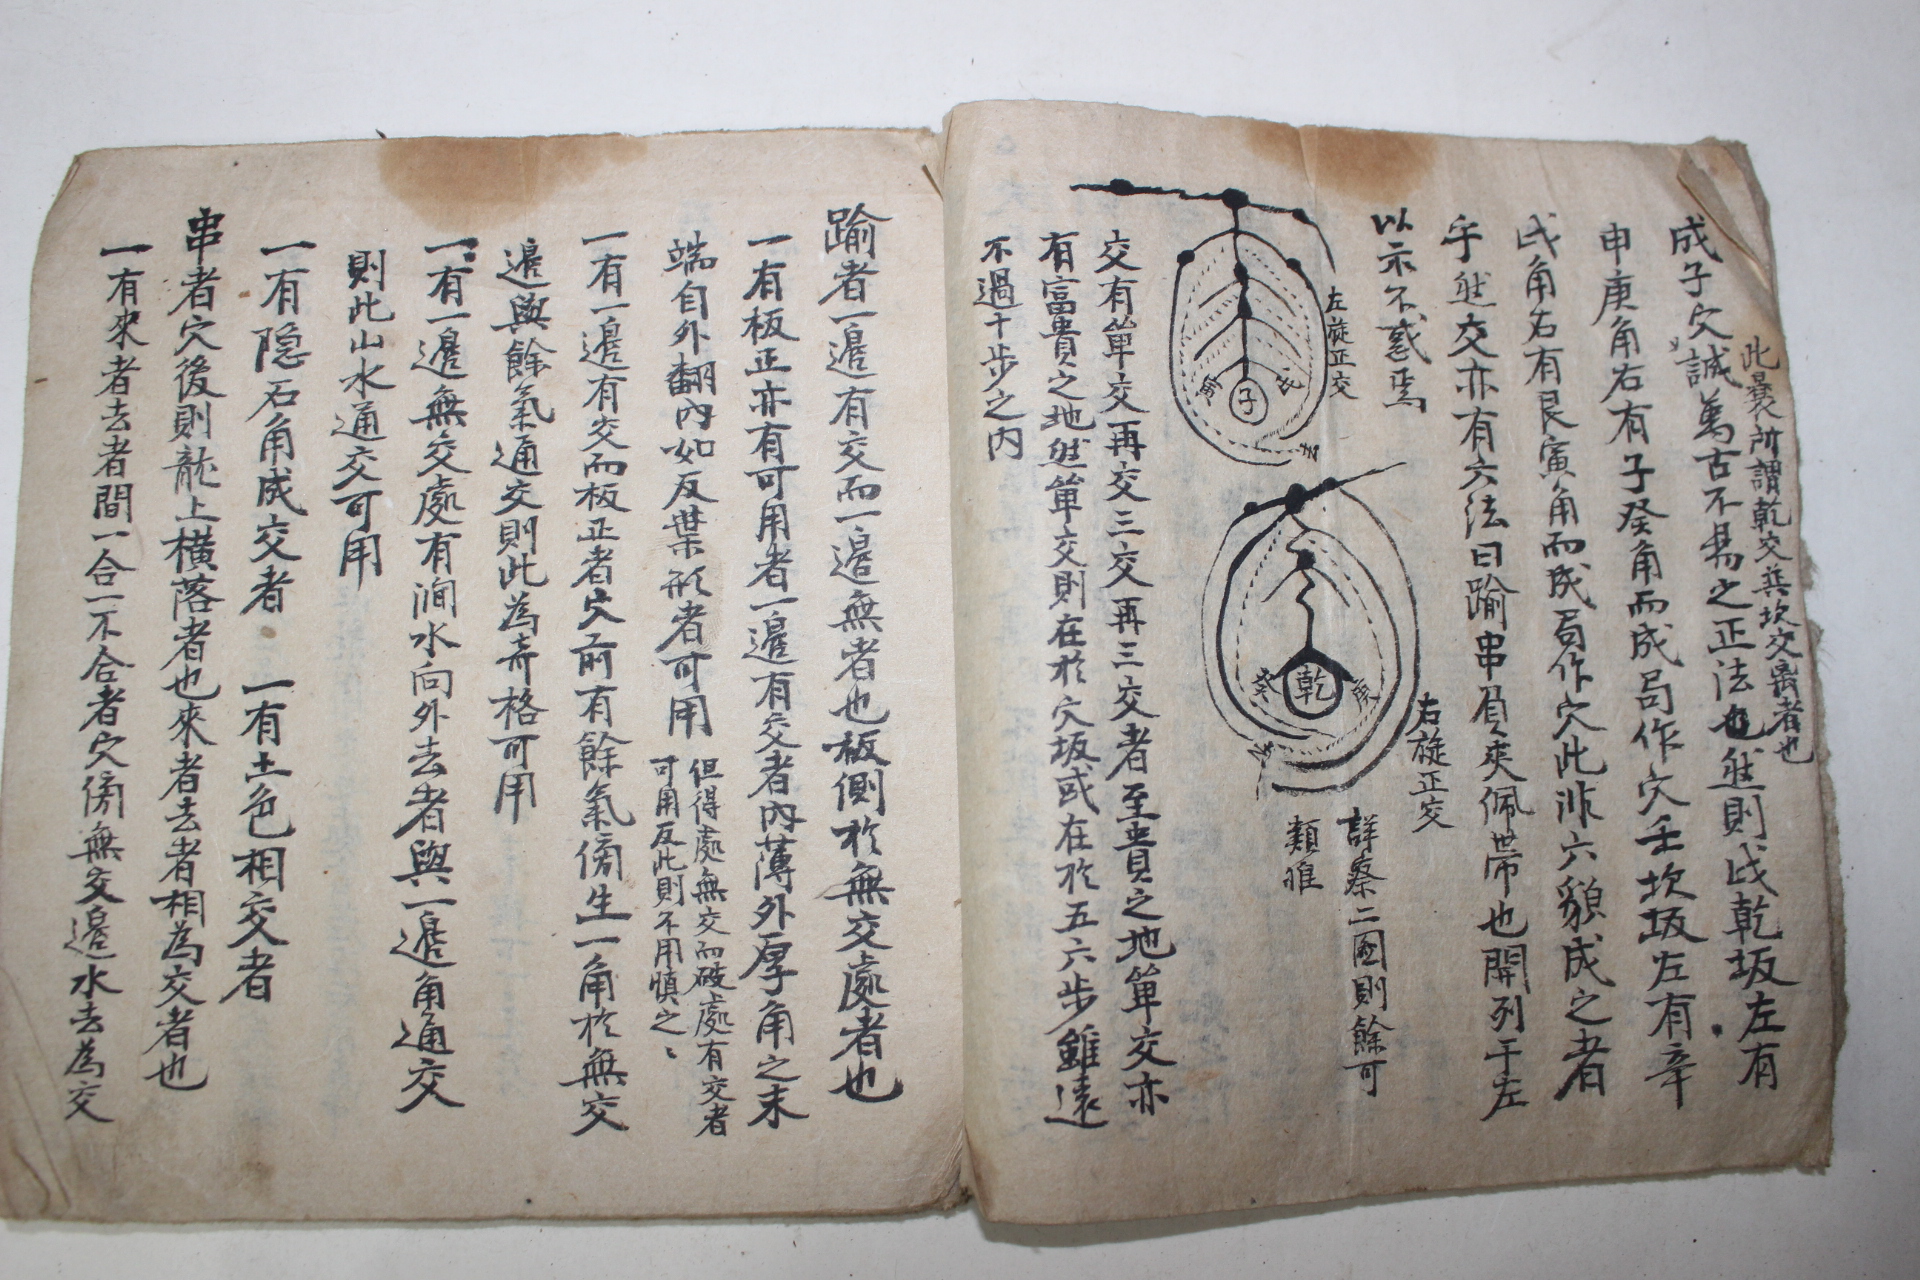 此曩所謂乾交兼坎交离者也
成子穴誠萬古不易之正法也然則戌乾坂左有
申庚角右有子癸角而成局作穴壬坎坂左有辛
戌角右有艮寅角而成局作穴此非六貌成之者
乎然交亦有六法曰踰串負夾佩帶也開列于左
以示不惑焉
左旋正交
子
右旋正交
乾
癸
詳察二圖則餘可
類推
交有單交再交三交再三交者至貴之地單交亦
有富貴之地然單交則在於穴坂或在於五六步雖遠
不過十步之內
踰者一邊有交而一邊無者也板側於無交處者也
一有板正亦有可用者一邊有交者內薄外厚角之末
端自外翻內如反葉形者可用
但得處無交而破處有交者
可用反此則不用愼之〻
一有一邊有交而板正者穴前有餘氣傍生一角於無交
邊與餘氣通交則此為奇格可用
一有一邊無交處有澗水向外去者與一邊角通交
則此山水通交可用
一有隠石角成交者 一有土色相交者
串者穴後則龍上橫落者也來者去者相為交者也
一有來者去者間一合一不合者穴傍無交邊水去為交